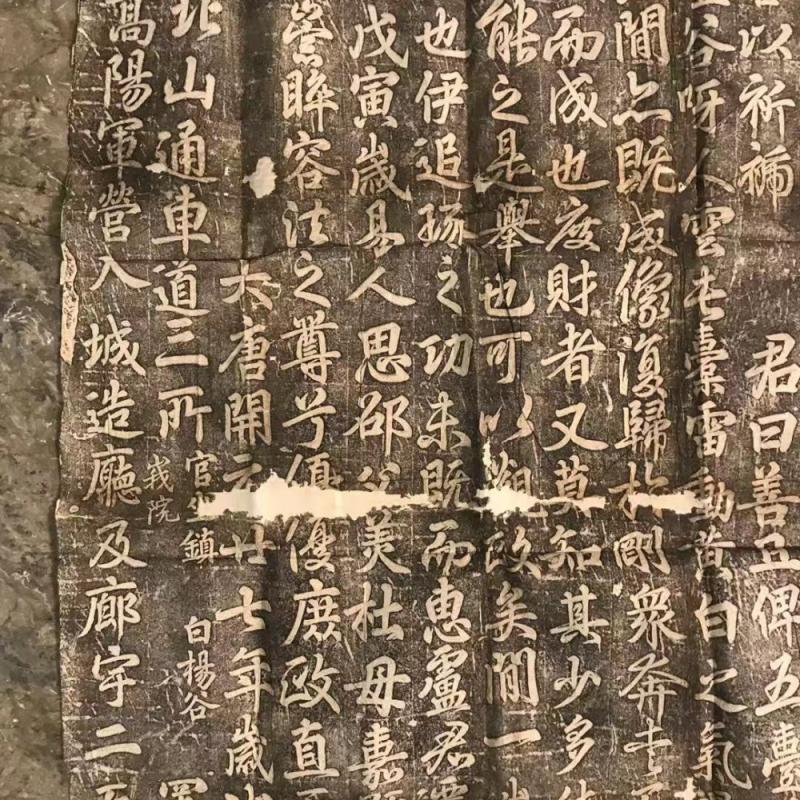 以祈禱 君曰善且俾五疊
谷呀人雲屯橐雷動黄白之氣
間亦既成像復歸於剛衆奔走
而成也度財者又莫知其少多
能之是舉也可以觀政矣間一
也伊追琢之功未既而惠盧君
戊寅歲易人思邵父美杜母嘉
崇睟容法之尊兮優優庶政直
大唐開元廿七年歲
北山通車道三所 官 鎮 白楊谷
峩院
高陽軍營入城造廳及廊宇二